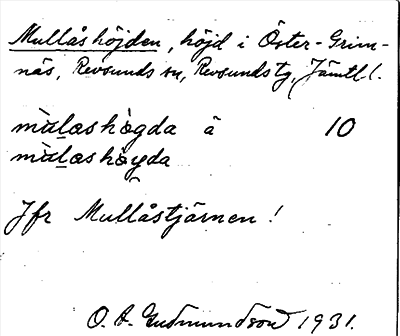 Mullåshöjden, höjd i Öster-Grim-
näs, Revsunds sn, Revsunds tg, Jämtl.
mùlashø̀gda å 10
mùlashø̀yda
Jfr Mullåstjärnen!
O. A. Gudmundson 1931.